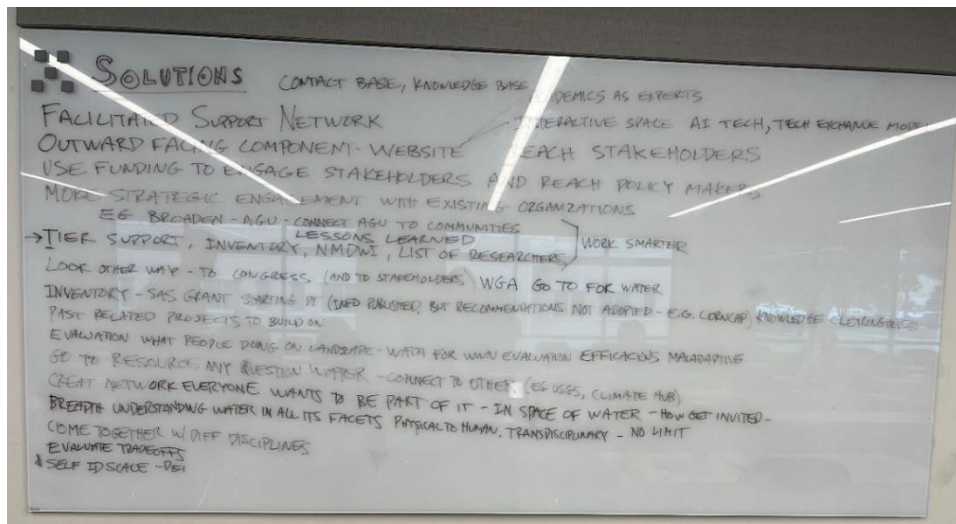 SOLUTIONS CONTACT BASE, KNOWLEDGE BASE, ACADEMICS AS EXPERTS
FACILITATED SUPPORT NETWORK - INTERACTIVE SPACE AI TECH, TECH EXCHANGE MODEL
OUTWARD FACING COMPONENT - WEBSITE REACH STAKEHOLDERS
USE FUNDING TO ENGAGE STAKEHOLDERS AND REACH POLICY MAKERS
MORE STRATEGIC ENGAGEMENT WITH EXISTING ORGANIZATIONS
EG BROADEN - AGU - CONNECT AGU TO COMMUNITIES
LESSONS LEARNED
→ TIER SUPPORT, INVENTORY, NMDWI, LIST OF RESEARCHERS WORK SMARTER
LOOK OTHER WAY - TO CONGRESS (AND TO STAKEHOLDERS) WGA GO TO FOR WATER
INVENTORY - SAS GRANT STARTING PT (INFO PUBLISHED, BUT RECOMMENDATIONS NOT ADOPTED - E.G. KNOWLEDGE
PAST RELATED PROJECTS TO BUILD ON
EVALUATION WHAT PEOPLE DOING ON LANDSCAPE - FOR EVALUATION MALADAPTIVE
GO TO RESOURCE ANY QUESTION WATER - CONNECT TO OTHERS (EG USGS, CLIMATE HUB)
CREAT NETWORK EVERYONE WANTS TO BE PART OF IT - IN SPACE OF WATER - HOW GET INVITED -
BREADTH UNDERSTANDING WATER IN ALL ITS FACETS PHYSICAL TO HUMAN, TRANSDISCIPLINARY - NO LIMIT
COME TOGETHER W/ DIFF DISCIPLINES
EVALUATE TRADEOFFS
SELF ID SCALE -